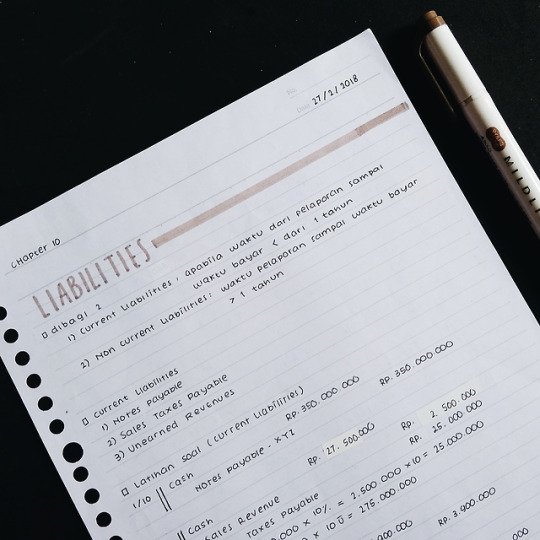 No.
Date 27/2/2018
CHapter 10
LIABILITIES
□ dibagi 2
1) Current Liabilities: apabila waktu dari pelaporan sampai
waktu bayar < dari 1 tahun
2) Non current Liabilities: waktu pelaporan sampai waktu bayar
> 1 tahun
□ Current Liabilities
1) Notes Payable
2) Sales Taxes Payable
3) Unearned Revenues
□ Latihan soal (current Liabilities)
1/10 Cash RP. 350.000.000
Notes Payable - XYZ RP. 350.000.000
Cash RP. 27.500.000
Sales Revenue RP. 2.500.000
Taxes Payable RP. 25.000.000
.000 x 10% = 2.500.000 x 10 = 25.000.000
x 10 = 275.000.000
RP. 3.900.000
MILDLI